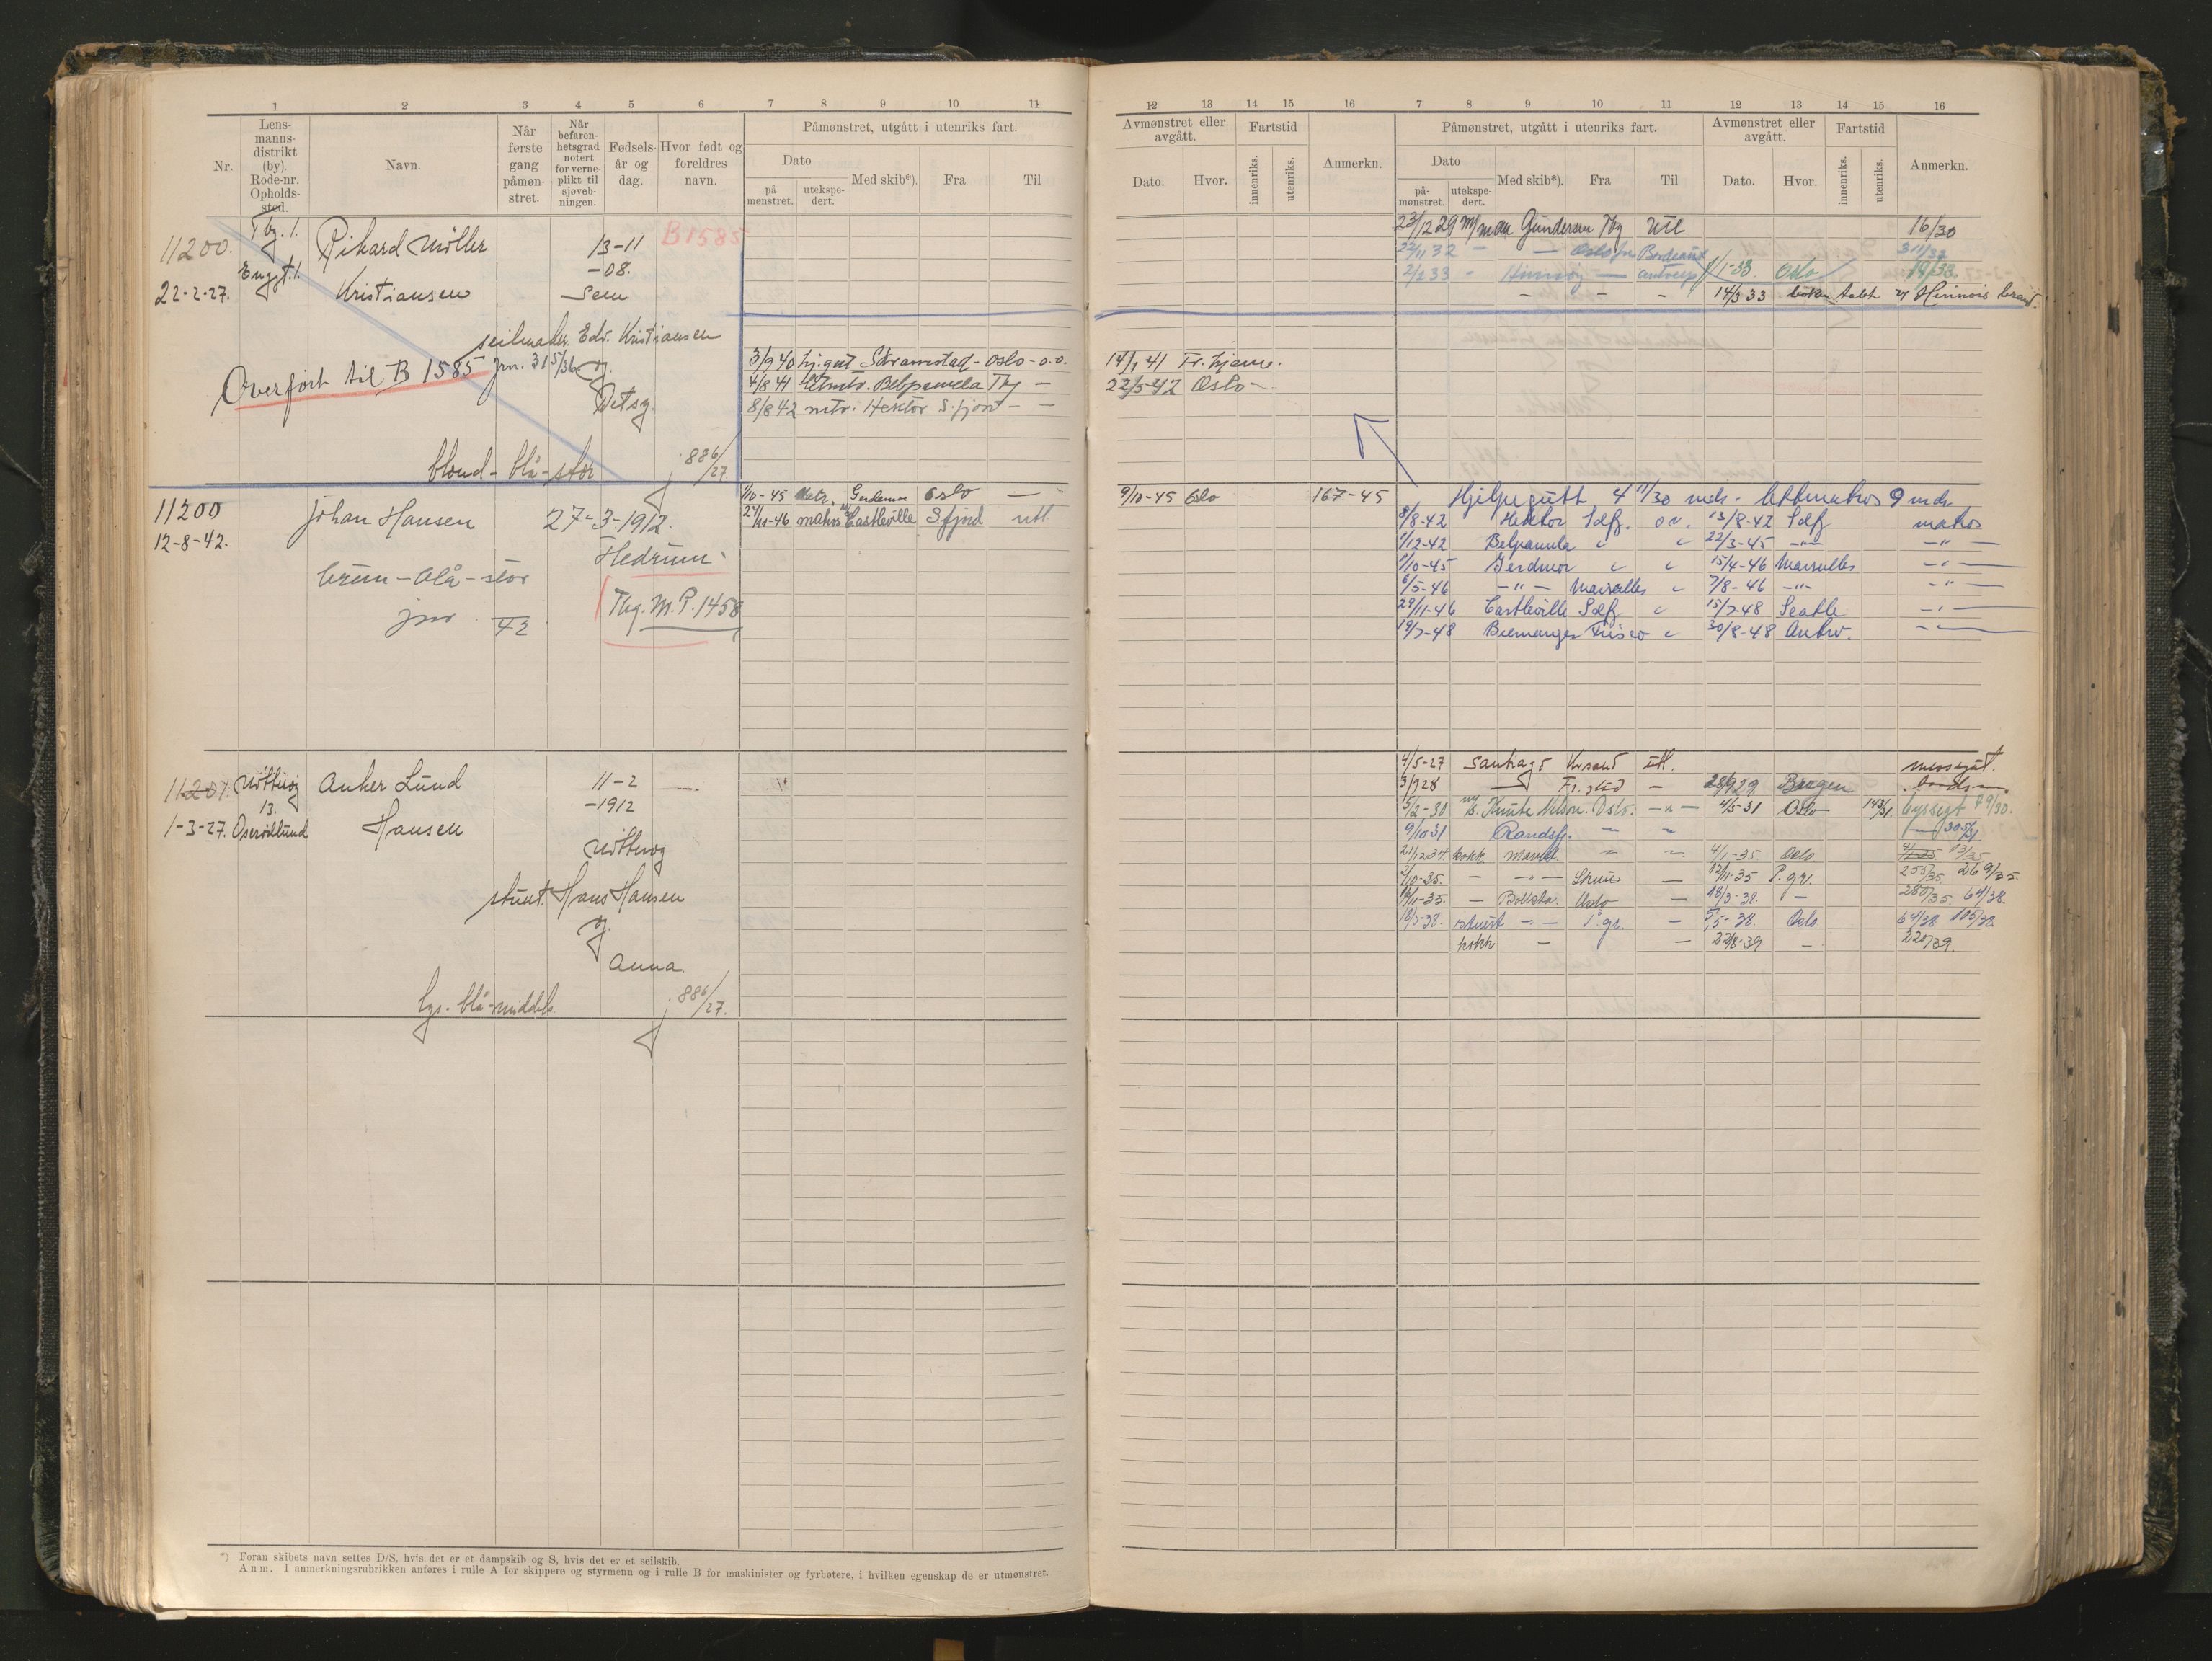 1 2 3 4 5 6 7 8 9 10 11
Nr. Lens-manns-distrikt (by). Rode-nr. Opholds-sted. Navn. Når første gang påmøn-stret. Når befaren-hetsgrad notert for verne-plikt til sjøveb-ningen. Fødsels-år og dag. Hvor født og foreldres navn.
Påmønstret, utgått i utenriks fart.
Dato på mønstret. utekspe-dert. Med skib*). Fra Til
11200. Tbg. 1. Rikard Møller 13-11 B1585
Enggt. 1. -08.
22-2-27. Kristiansen Sem
seilmaker Edv. Kristiansen
Overført til B 1585 jrn. 315/36 og
Betsy.
blond - blå - stor 886/27.
3/9 40 hj.gut Skramstad - Oslo - o.o.
4/8 41 Belpamela Tbg -
8/8 42 mtr. Hektor S.fjord - -
11200 Johan Hansen 27-3-1912.
12-8-42. Hedrum
brun - blå - stor
jnr 42 Tbg. M.P. 1458
1/10-45 Matr. Gerdmor Oslo -
29/11-46 matros Castleville S.fjord utl.
11201. Nøtterøy Anker Lund 11-2
13. -1912
1-3-27. Oserødlund Hansen
Nøtterøy
stuert Hans Hansen
og
Anna
lys. blå - middels. 886/27.
*) Foran skibets navn settes D/S, hvis det er et dampskib og S, hvis det er et seilskib.
Anm. I anmerkningsrubrikken anføres i rulle A for skippere og styrmenn og i rulle B for maskinister og fyrbøtere, i hvilken egenskap de er utmønstret.
12 13 14 15 16 7 8 9 10 11 12 13 14 15 16
Avmønstret eller avgått. Fartstid Anmerkn. Påmønstret, utgått i utenriks fart. Avmønstret eller avgått. Fartstid Anmerkn.
Dato. Hvor. innenriks. utenriks. Dato på-mønstret. utekspe-dert. Med skib*). Fra Til Dato. Hvor. innenriks. utenriks.
23/12 29 Gundersen Tbg Utl 16/30
22/11 32 - - Oslo Bordeaux 1/1-33. Oslo 311/32
2/2 33 - Hinnøy - Antwerp 19/33.
- - - 14/3 33 boken tabt v/ Hinnøis brand.
14/1 41 Fr.hjavn.
22/5-42 Oslo -
9/10-45 Oslo 167-45
Hjelpegutt 4 11/30 mdr. lettmatros 9 mdr.
8/8-42 Hektor Sdfj. o.v. 13/8-42 Sdfj matros
1/12-42 Belpamela " " 22/3-45 -"- -"-
1/10-45 Gerdmor " " 15/4-46 Marseilles -"-
6/5-46 -"- Marseilles " 7/8-46 -"- -"-
29/11-46 Castleville Sdfj " 15/7-48 Seatle -"-
19/7-48 Bremanger Frisco " 30/8-48 Antw. -"-
4/5-27 Santiago Krsand utl. messegut.
3/9 28 - Fr.stad - 28/9 29 Bergen
5/2-30 M/S. Knute Nelson. Oslo. -"- 4/5-31 Oslo 143/31. byssegt 79/30.
9/10 31 Randsfj. " " - 305/31
21/12 34 kokk " " 4/1-35. Oslo 13/35
2/10-35. - -"- - 12/11-35 P.gr. 255/35 269/35.
14/11-35. - Oslo - 18/3-38. - 280/35. 64/38.
18/3-38. stuert -"- P.gr. - 5/5-38 Oslo 64/38 105/38
kokk - - 22/8-39 - 220/39.